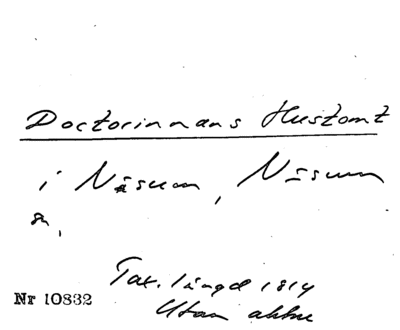 Doctorinnans Hustomt
i Näsum, Näsum
sn,
Tax. längd 1814
Utan aktnr
Nr 10832